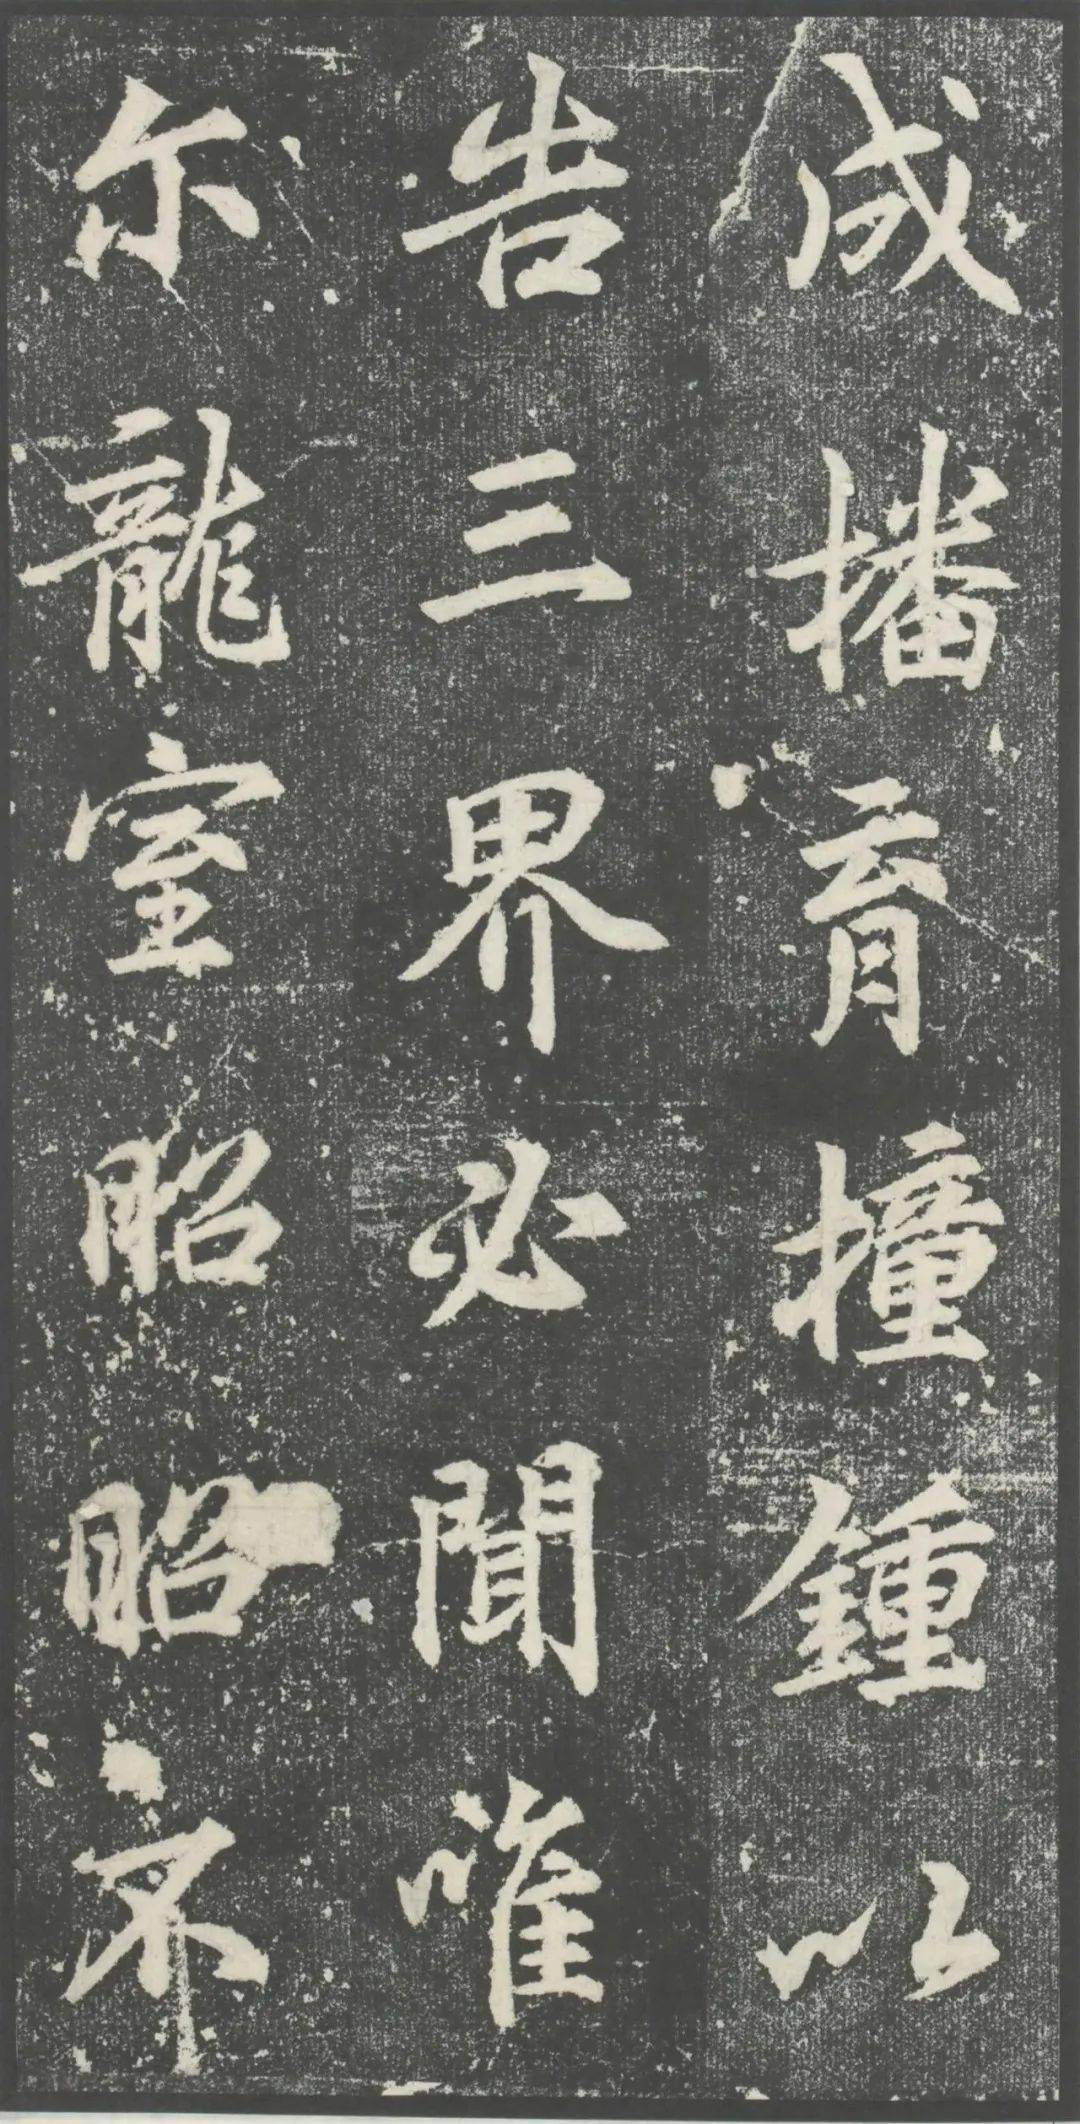 成播育撞鍾以
告三界必聞唯
尔龍室昭昭不